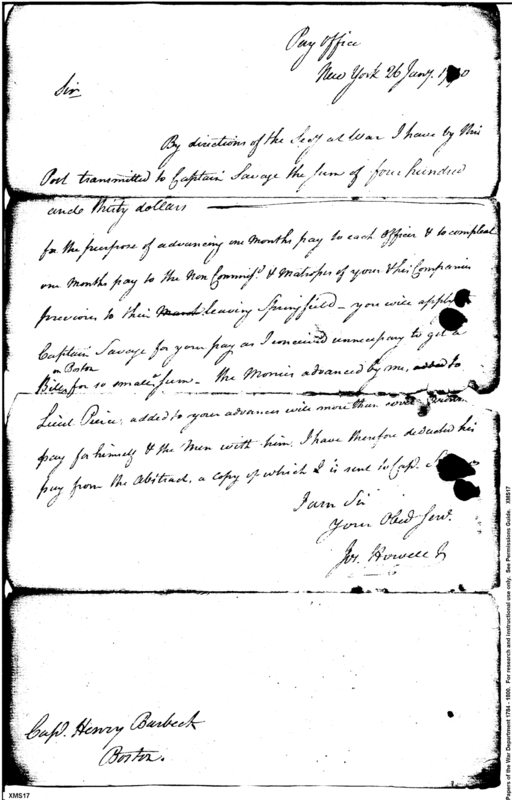 Pay Office
New York 26 Jany. 1790
Sir
By directions of the Secy at War I have by this
Post transmitted to Captain Savage the sum of four hundred
and thirty dollars
for the purpose of advancing one months pay to each officer & to compleat
one months pay to the Non Commissd. & Matrosses of your & his Companies
previous to their March leaving Springfield - you will apply
Captain Savage for your pay as I conceived unnecessary to get a
on Boston
Bill for so small a sum - the Monies advanced by me, added to
Lieut Peirce, added to your advances will more than
pay for himself & the Men with him, I have therefore deducted his
pay from the Abstract, a copy of which I is sent to Cap.
I am Sir
Your Obed Serv.
Jos. Howell Jr
Capt. Henry Burbeck
Boston.
XMS17
Papers of the War Department 1784 - 1800. For research and instructional use only. See Permissions Guide. XMS17